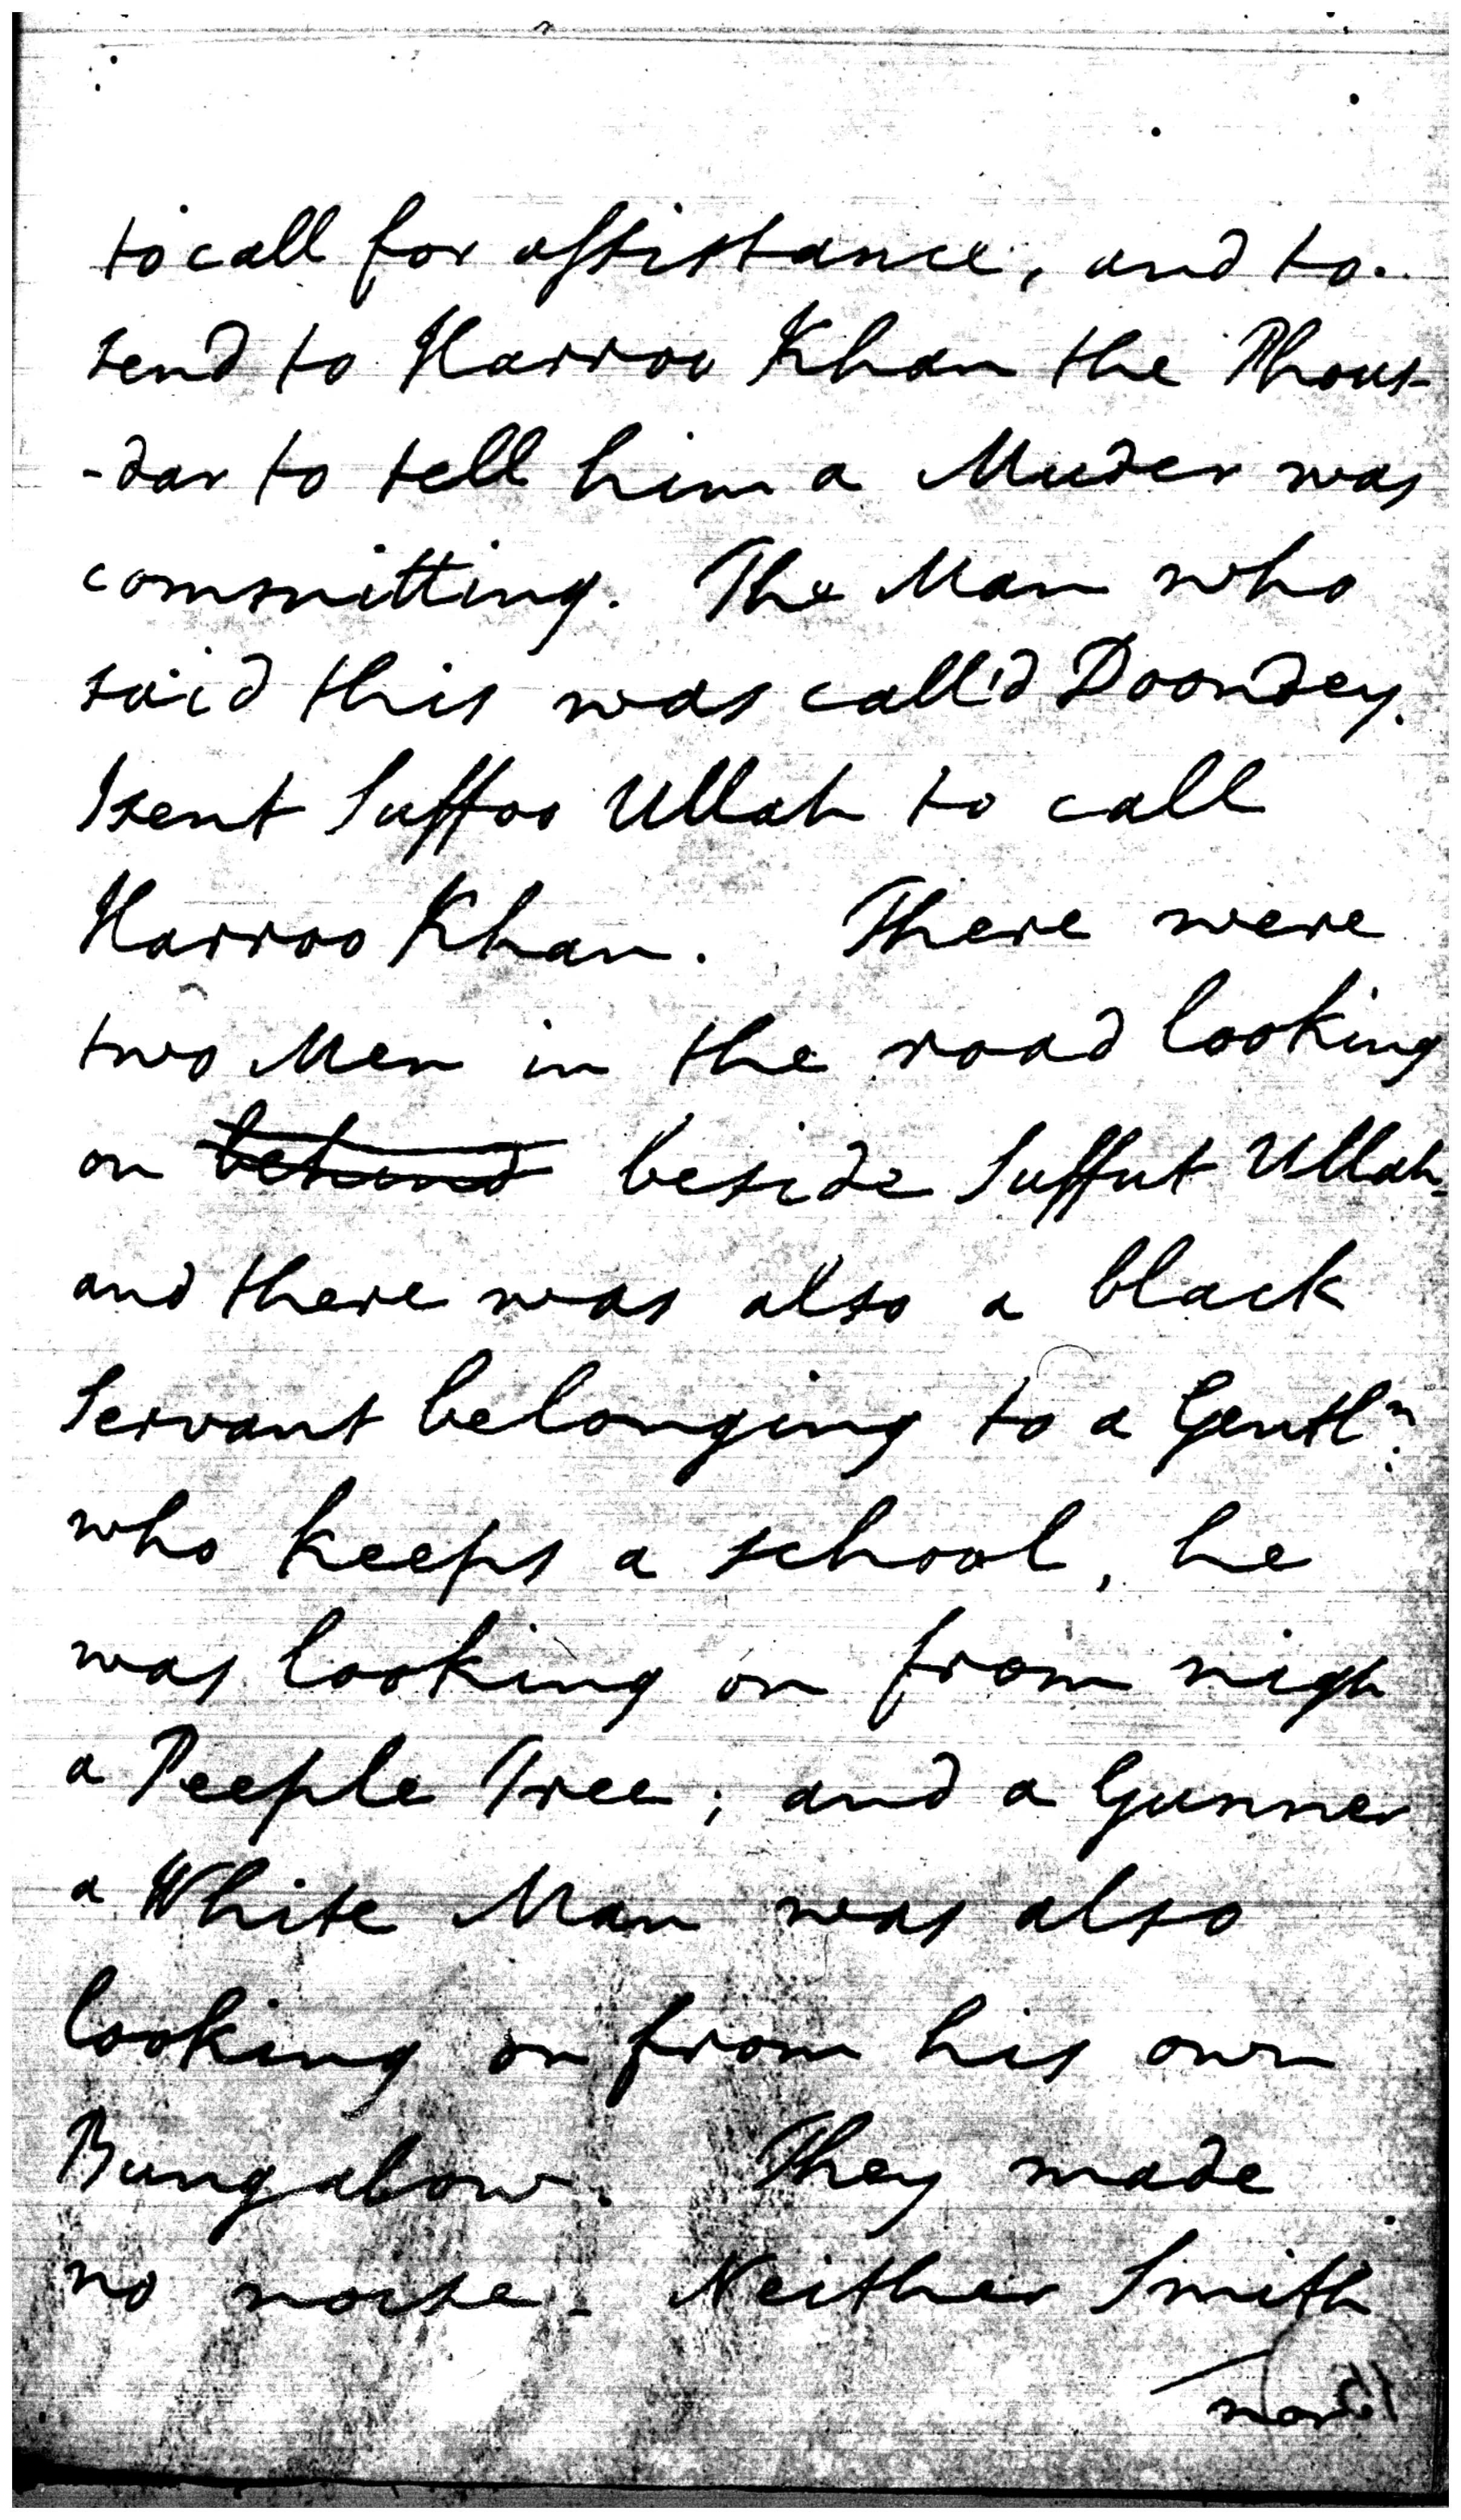 to call for assistance, and to
send to Harroo Khan the Phous-
-dar to tell him a Muder was
committing. The Man who
said this was call'd Doondey.
I sent Suffoo Ullah to call
Harroo Khan. There were
two Men in the road looking
on behind beside Suffut Ullah
and there was also a black
Servant belonging to a Gentln:
who keeps a school, he
was looking on from nigh
a Peeple Tree; and a Gunner
a White Man was also
looking on from his own
Bungalow. They made
no noise - Neither Smith
nor